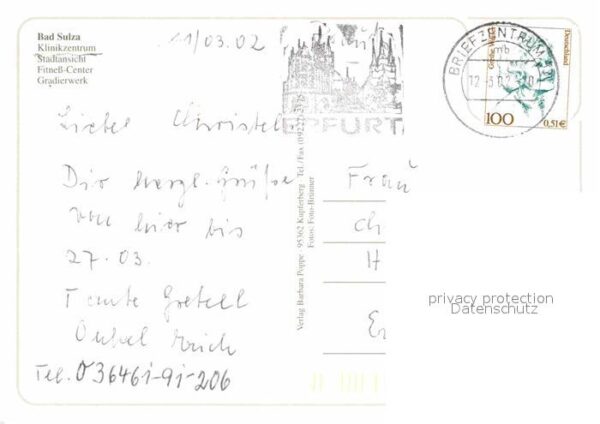 Bad Sulza
Klinikzentrum
Stadtansicht
Fitneß-Center
Gradierwerk
11/03.02
ERFURT
BRIEFZENTRUM
mb
Grethe Weiser
Deutschland
100
0,51€
Christel
Dir herzl. Grüße
von hier bis
27.03.
Tante Gretell
Onkel Erich
Tel. 036461-91-206
Verlag Barbara Poppe · 95362 Kupferberg · Tel./Fax (09227)
Fotos: Foto-Brünner
Frau
Ch
H
privacy protection
Datenschutz